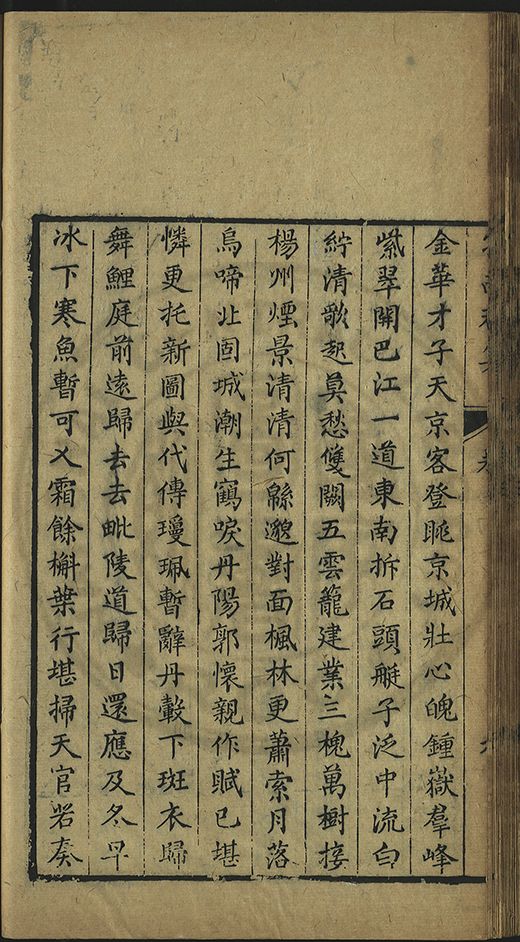 金華才子天京客登眺京城壯心魄鍾嶽羣峰
紫翠開巴江一道東南拆石頭艇子泛中流白
紵清歌起莫愁雙闕五雲籠建業三槐萬樹接
楊州煙景清清何緜邈對面楓林更蕭索月落
烏啼北固城潮生鶴唳丹陽郭懷親作賦已堪
憐更托新圖與代傳瓊珮暫辭丹轂下斑衣歸
舞鯉庭前遠歸去去毗陵道歸日還應及冬早
冰下寒魚暫可乂霜餘槲葉行堪掃天官若奏